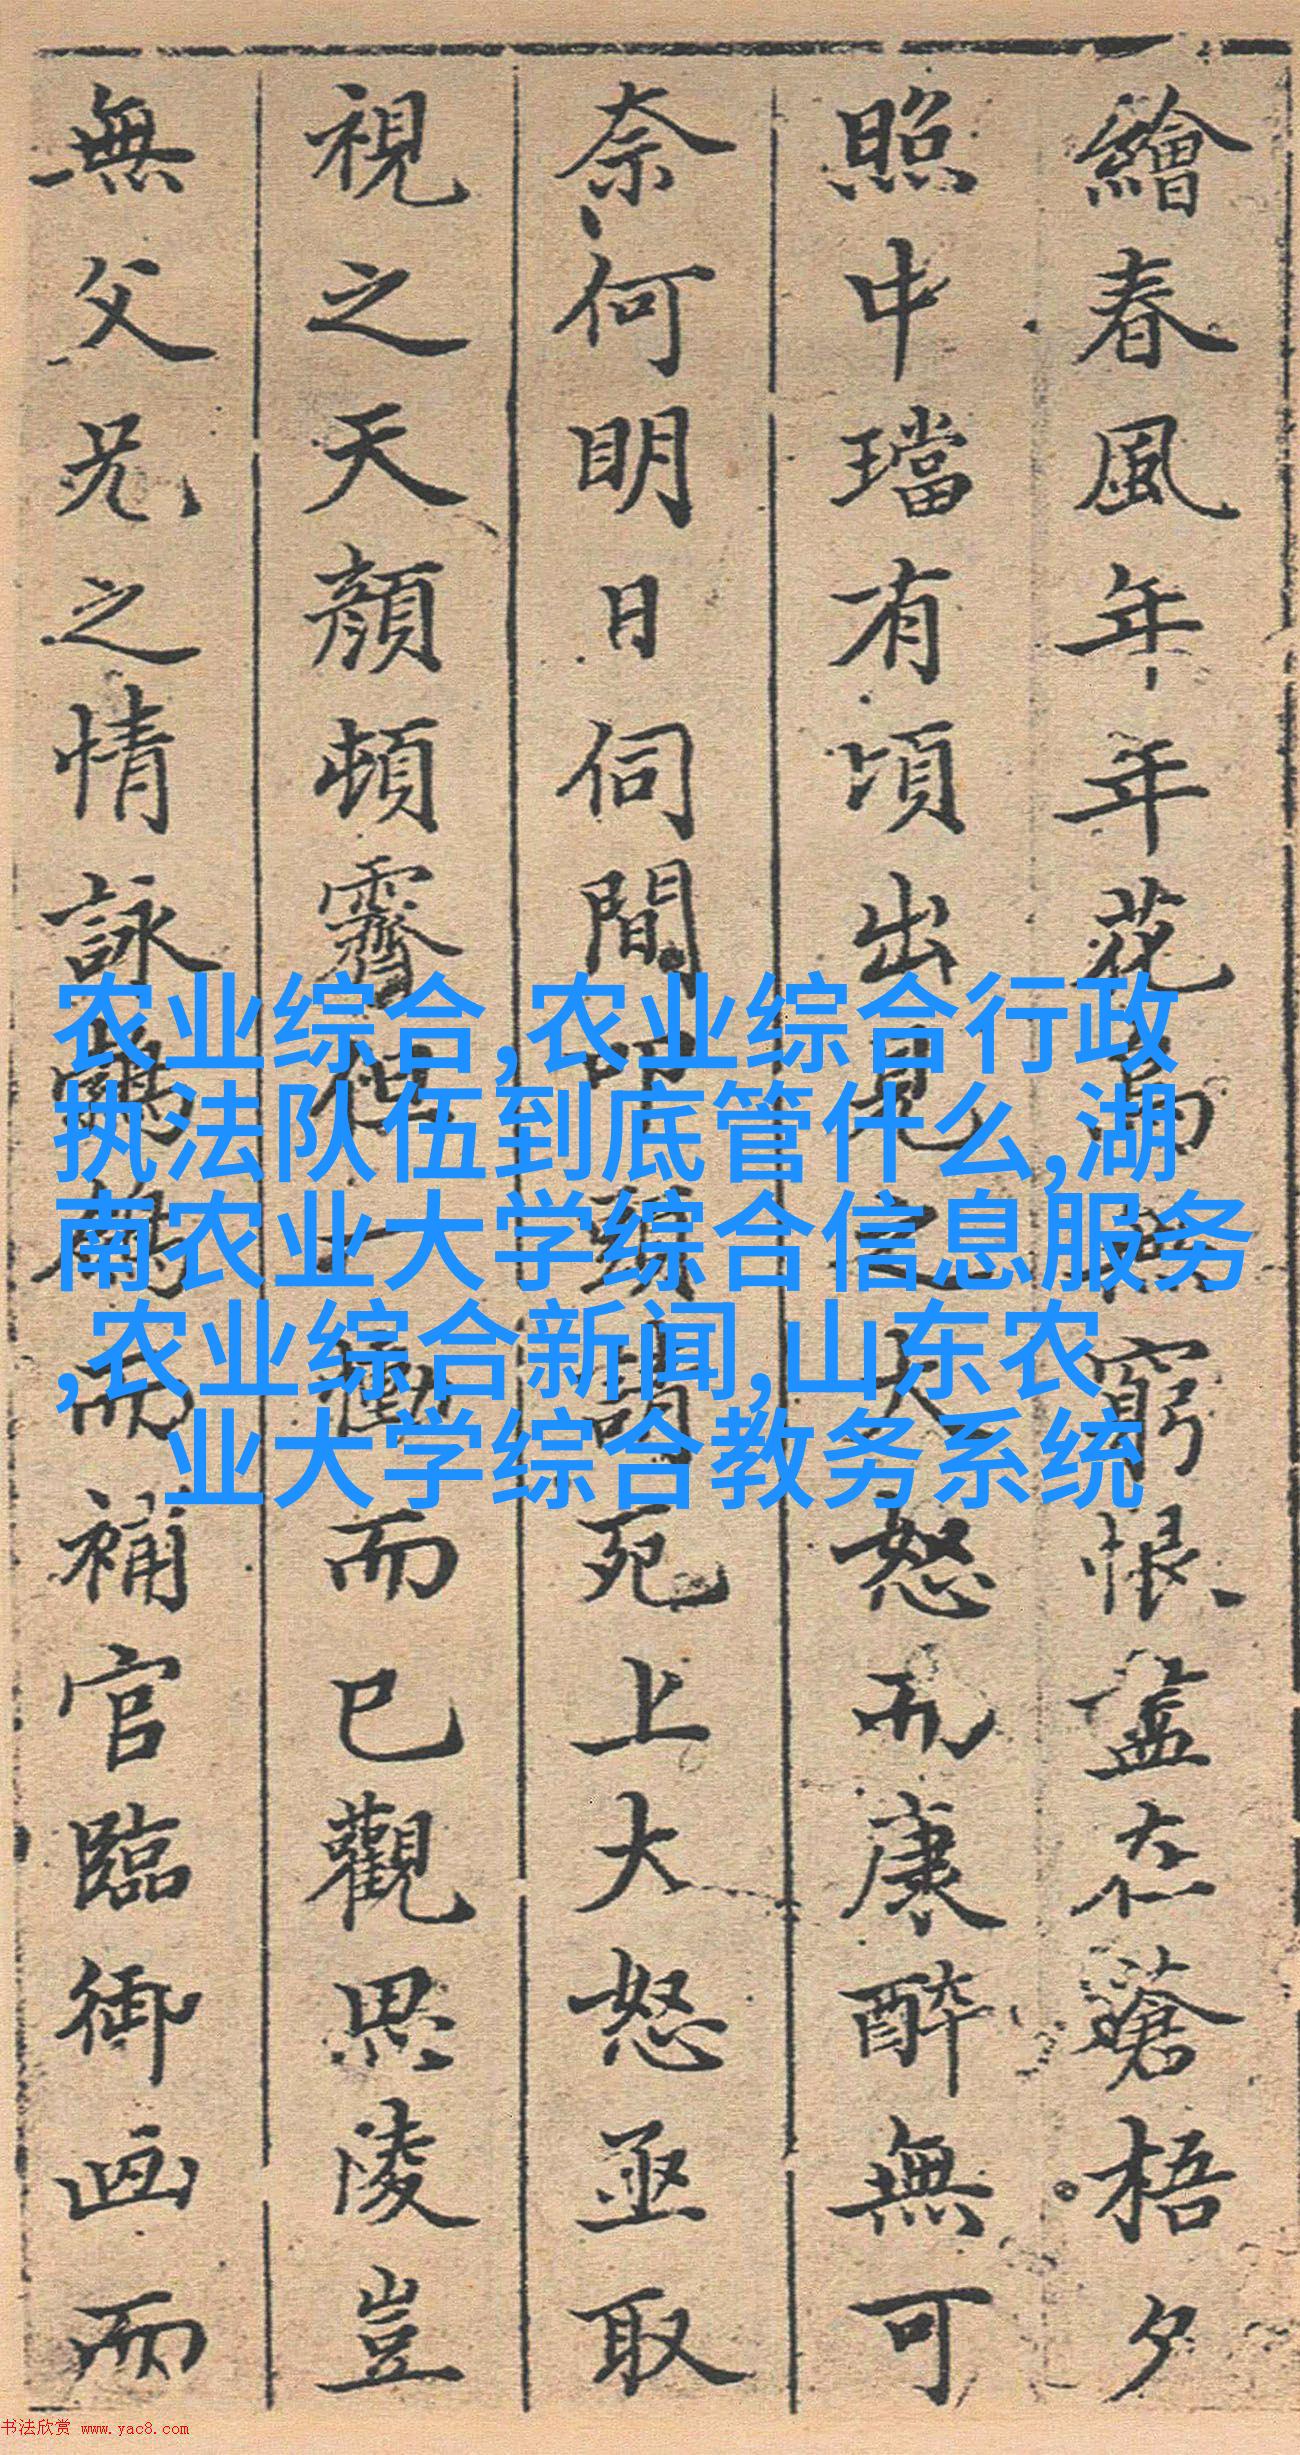 繪春風年年花鳥無窮恨盡在蒼梧夕
照中璫有頃出見之大怒而康醉無可
奈何明日伺間叩頭請死上大怒亟取
視之天顏頓霽但一慟而已觀思陵豈
無父兄之情詠鶺鴒而補官臨御画而
农业综合,农业综合行政
执法队伍到底管什么,湖
南农业大学综合信息服务
,农业综合新闻,山东农
业大学综合教务系统
书法欣赏 www.yac8.com